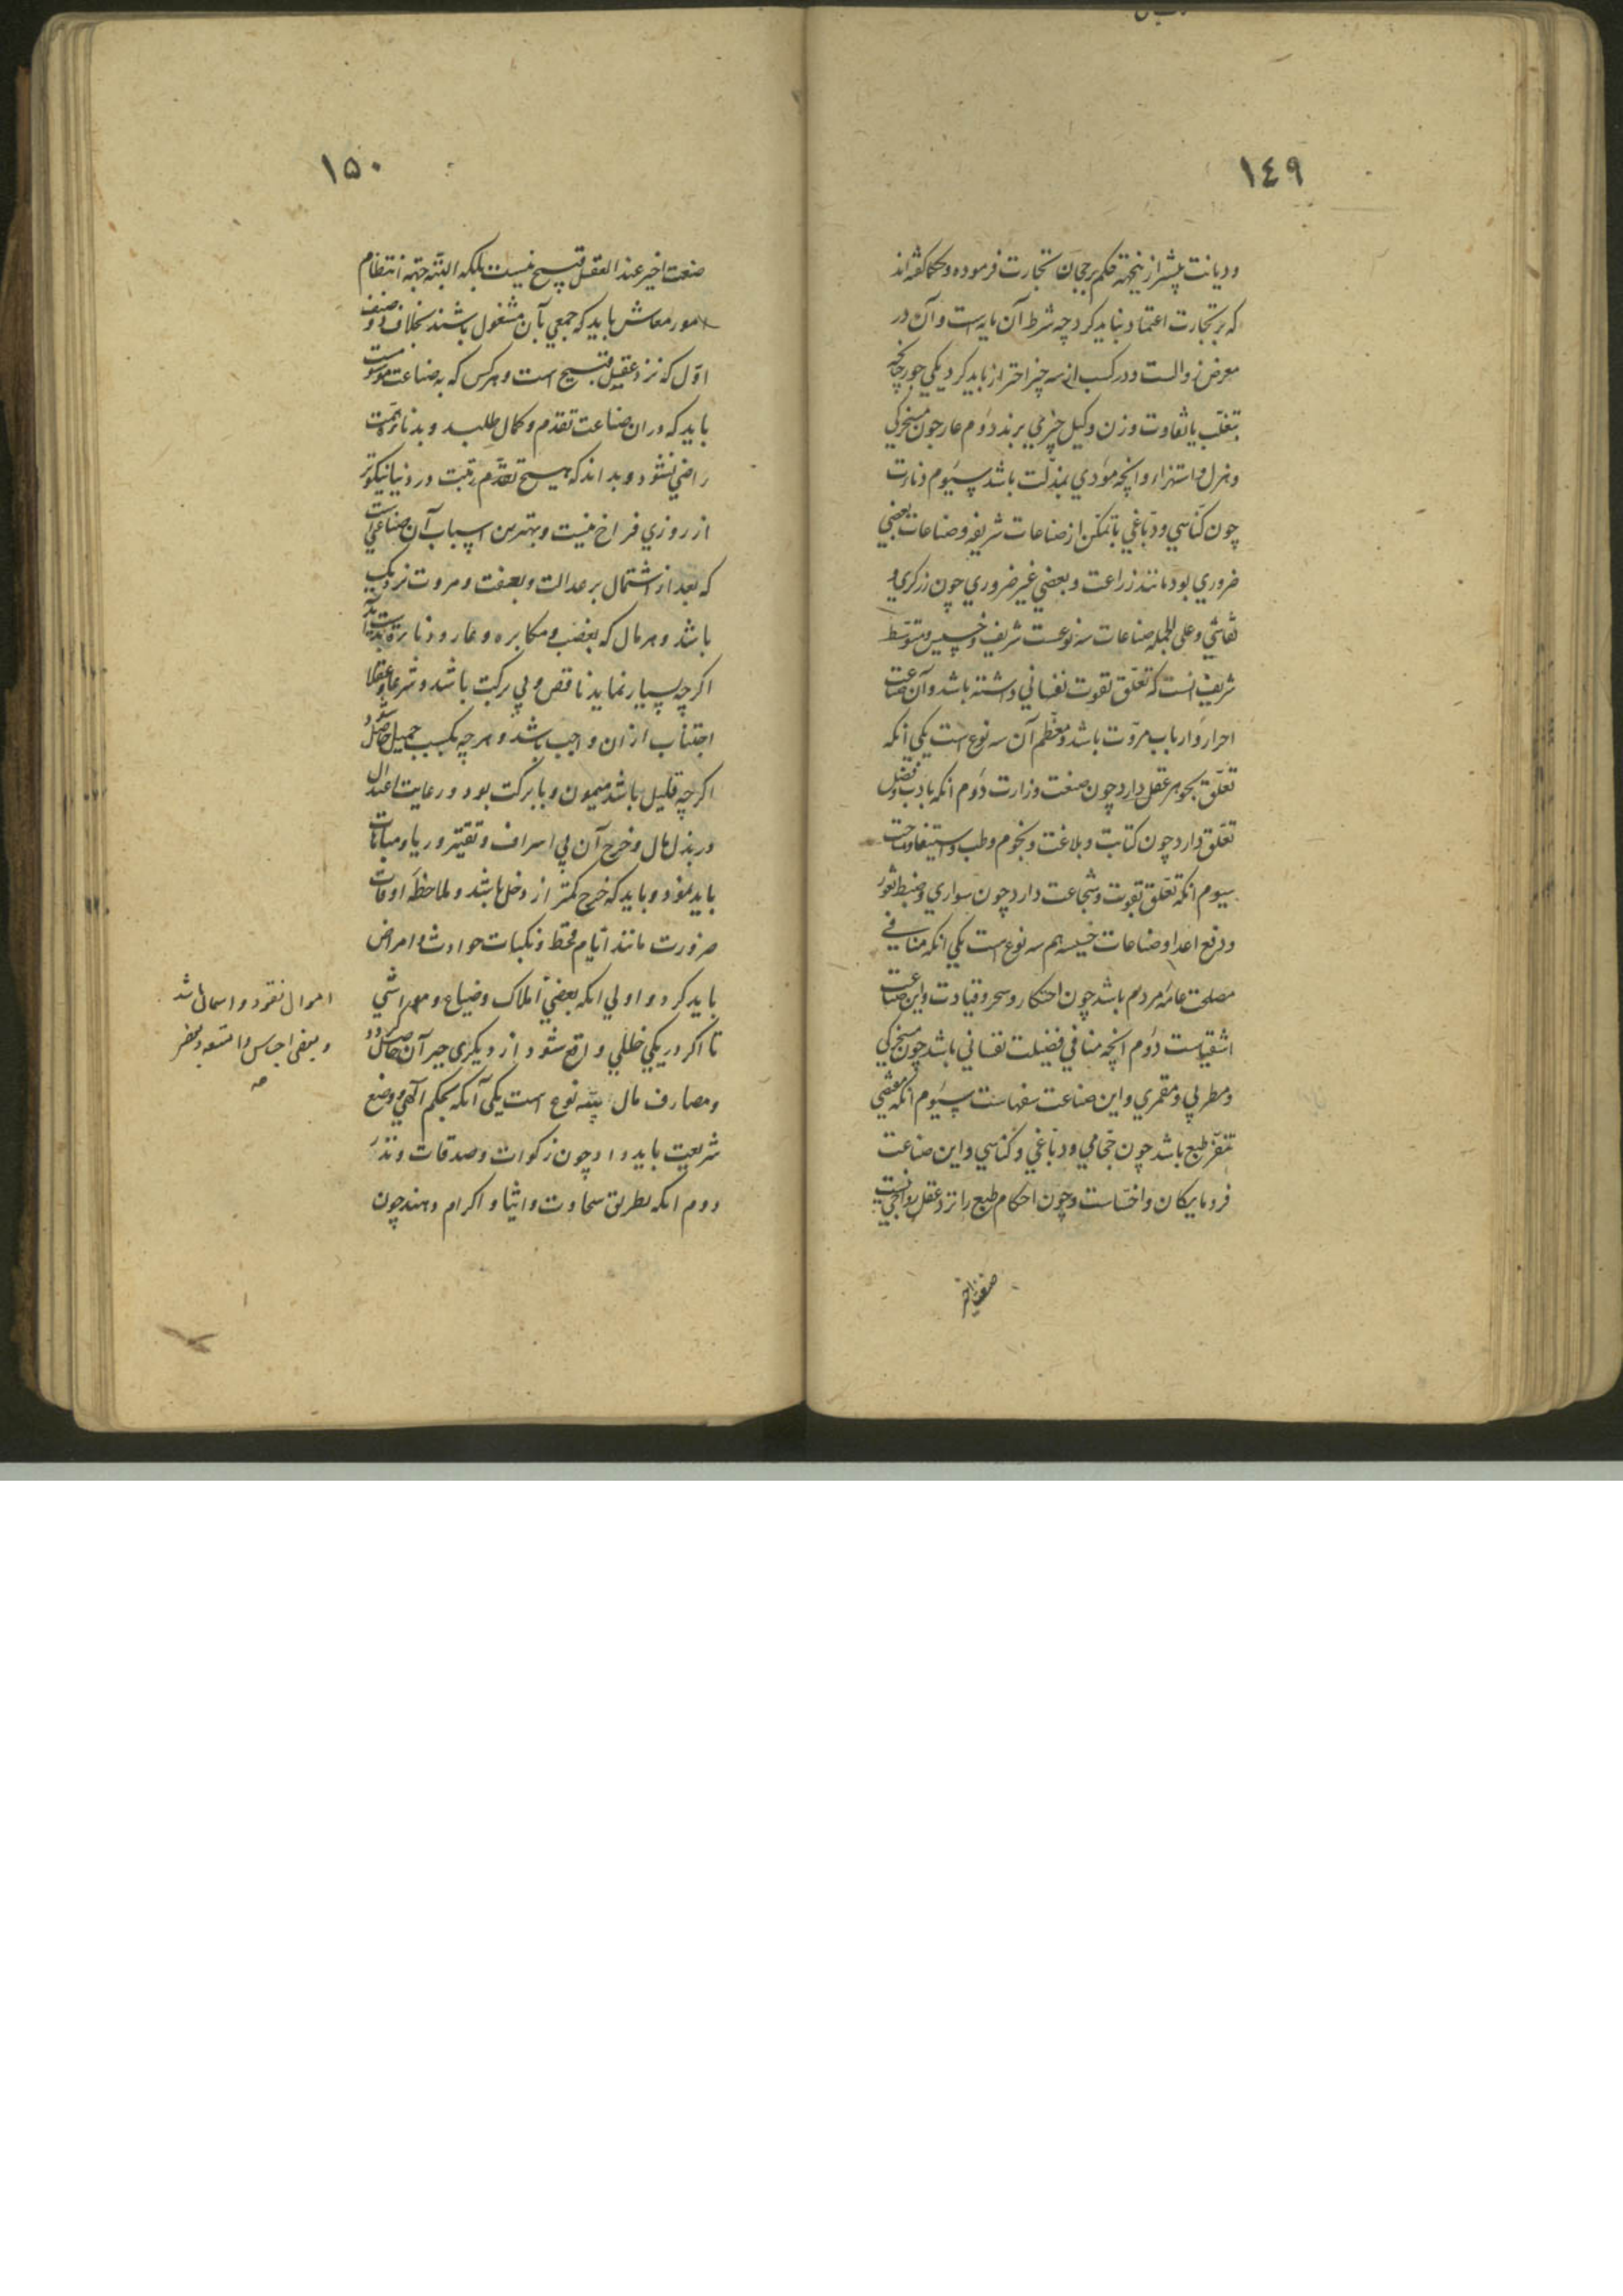 ١٤٩
و دیانت بیشتر ازینجهة حکم برجحان تجارت فرموده و حکما گفته‌اند
که بر تجارت اعتماد نباید کرد چه شرط آن مایه است و آن در
معرض زوالست و در کسب از سه چیز احتراز باید کرد یکی جور چنانچه
بتغلب یا تفاوت وزن و کیل چیزی برند دوم عار چون مسخرکی
و هزل و استهزاء و انچه مؤدی بمذلت باشد سیوم دنائت
چون کناسی و دباغی با تمکن از صناعات شریفه و صناعات بعضی
ضروری بود مانند زراعت و بعضی غیر ضروری چون زرکری و
نقاشی و علی الجمله صناعات سه نوعست شریف و خسیس و متوسط
شریف انست که تعلق بقوت نفسانی داشته باشد و آن صناعت
احرار و ارباب مروت باشد و معظم آن سه نوع است یکی آنکه
تعلق بجوهر عقل دارد چون صنعت وزارت دوم انکه بادب و فضل
تعلق دارد چون کتابت و بلاغت و نجوم و طب و استیفا و مساحت
سیوم انکه تعلق بقوت و شجاعت دارد چون سواری و ضبط ثغور
و دفع اعدا و صناعات خسیسه هم سه نوع است یکی انکه منافی
مصلحت عامه مردم باشد چون احتکار و سحر و قیادت و این صناعت
اشقیاست دوم انچه منافی فضیلت نفسانی باشد چون مسخرکی
و مطربی و مقمری و این صناعت سفهاست سیوم انکه مقتضی
تنفر طبع باشد چون حجامی و دباغی و کناسی و این صناعت
فرومایکان و اخسّاست و چون احکام طبع را نزد عقل رواجی نیست
صنعت اخیر
١٥٠
صنعت اخیر عند العقل قبیح نیست بلکه البته جهة انتظام
امور معاش باید که جمعی بآن مشغول باشند بخلاف دو صنف
اول که نزد عقل قبیح است و هر کس که به صناعت موسوست
باید که در ان صناعت تقدم و کمال طلبد و بدنائت همت
راضی نشود و بداند که هیچ تقدم رتبت در دنیا نیکوتر
از روزی فراخ نیست و بهترین اسباب آن صناعتی است
که بعد از اشتمال بر عدالت و بعفت و مروت نزدیک
باشد و هر مال که بغصب و مکابره و عار و دنائت بدست آید
اکرچه بسیار نماید ناقص و بی برکت باشد و شرعا و عقلا
اجتناب از ان واجب باشد و هرچه بکسب جمیل حاصل شود
اکرچه قلیل باشد میمون و بابرکت بود و رعایت اعتدال
در بذل مال و خرج آن بی اسراف و تقتیر و ریا و مباهات
باید نمود و باید که خرج کمتر از دخل باشد و ملاحظه اوقات
ضرورت مانند ایام قحط و نکبات حوادث و امراض
باید کرد و اولی انکه بعضی املاک و ضیاع و مواشی
تا اکر در یکی خللی واقع شود از دیکری جبر آن حاصل کردد
و مصارف مال سه نوع است یکی آنکه بحکم الهی و وضع
شریعت باید داد چون زکوات و صدقات و نذر
دوم انکه بطریق سخاوت و ایثار و اکرام دهند چون
اموال نقود و اسمال باشد
و بعضی اجناس و امتعه و بعضی
صه